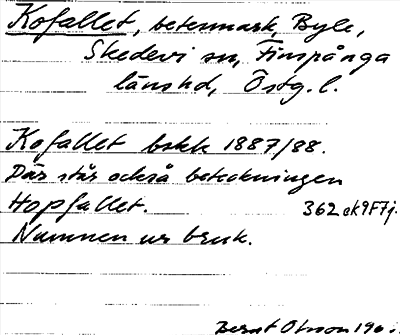 Kofallet, betesmark, Byle,
Skedevi sn, Finspånga
länshd, Östg. l.
Kofallet bskk 1887/88.
Där står också beteckningen
Hopfallet. 362 ek 9F7j.
Namnen ur bruk.
Bernt Olsson 196